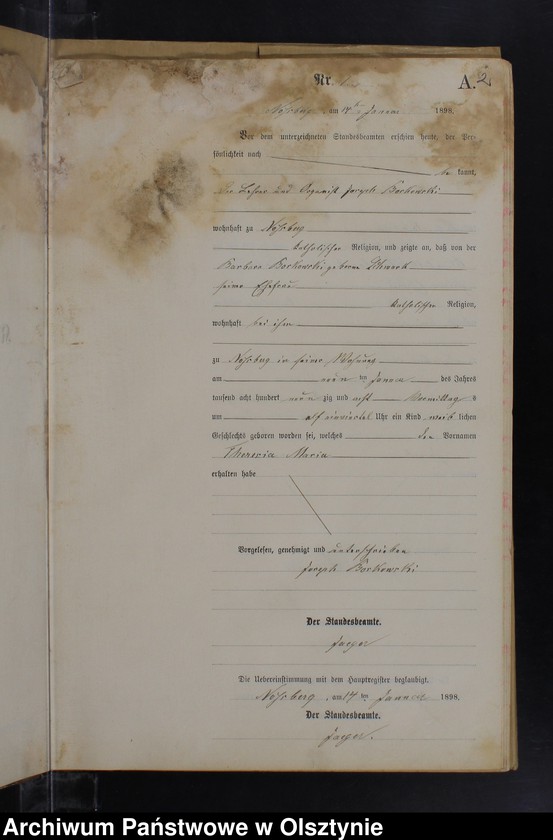 Nr.
A. 2
am Januar 1898.
Vor dem unterzeichneten Standesbeamten erschien heute, der Per-
sönlichkeit nach
be kannt,
der Lehrer und Organist Joseph Borkowski
wohnhaft zu Noßberg
katholischer Religion, und zeigte an, daß von der
Barbara Borkowski geborene
seiner Ehefrau
katholischer Religion,
wohnhaft bei ihm
zu Noßberg in seiner Wohnung
am neun ten Januar des Jahres
tausend acht hundert neun zig und acht Vormittag s
um elf einviertel Uhr ein Kind weib lichen
Geschlechts geboren worden sei, welches den Vornamen
Theresia Maria
erhalten habe
Vorgelesen, genehmigt und unterschrieben
Joseph Borkowski
Der Standesbeamte.
Die Uebereinstimmung mit dem Hauptregister beglaubigt.
Noßberg, am 17 ten Januar 1898.
Der Standesbeamte.
Archiwum Państwowe w Olsztynie